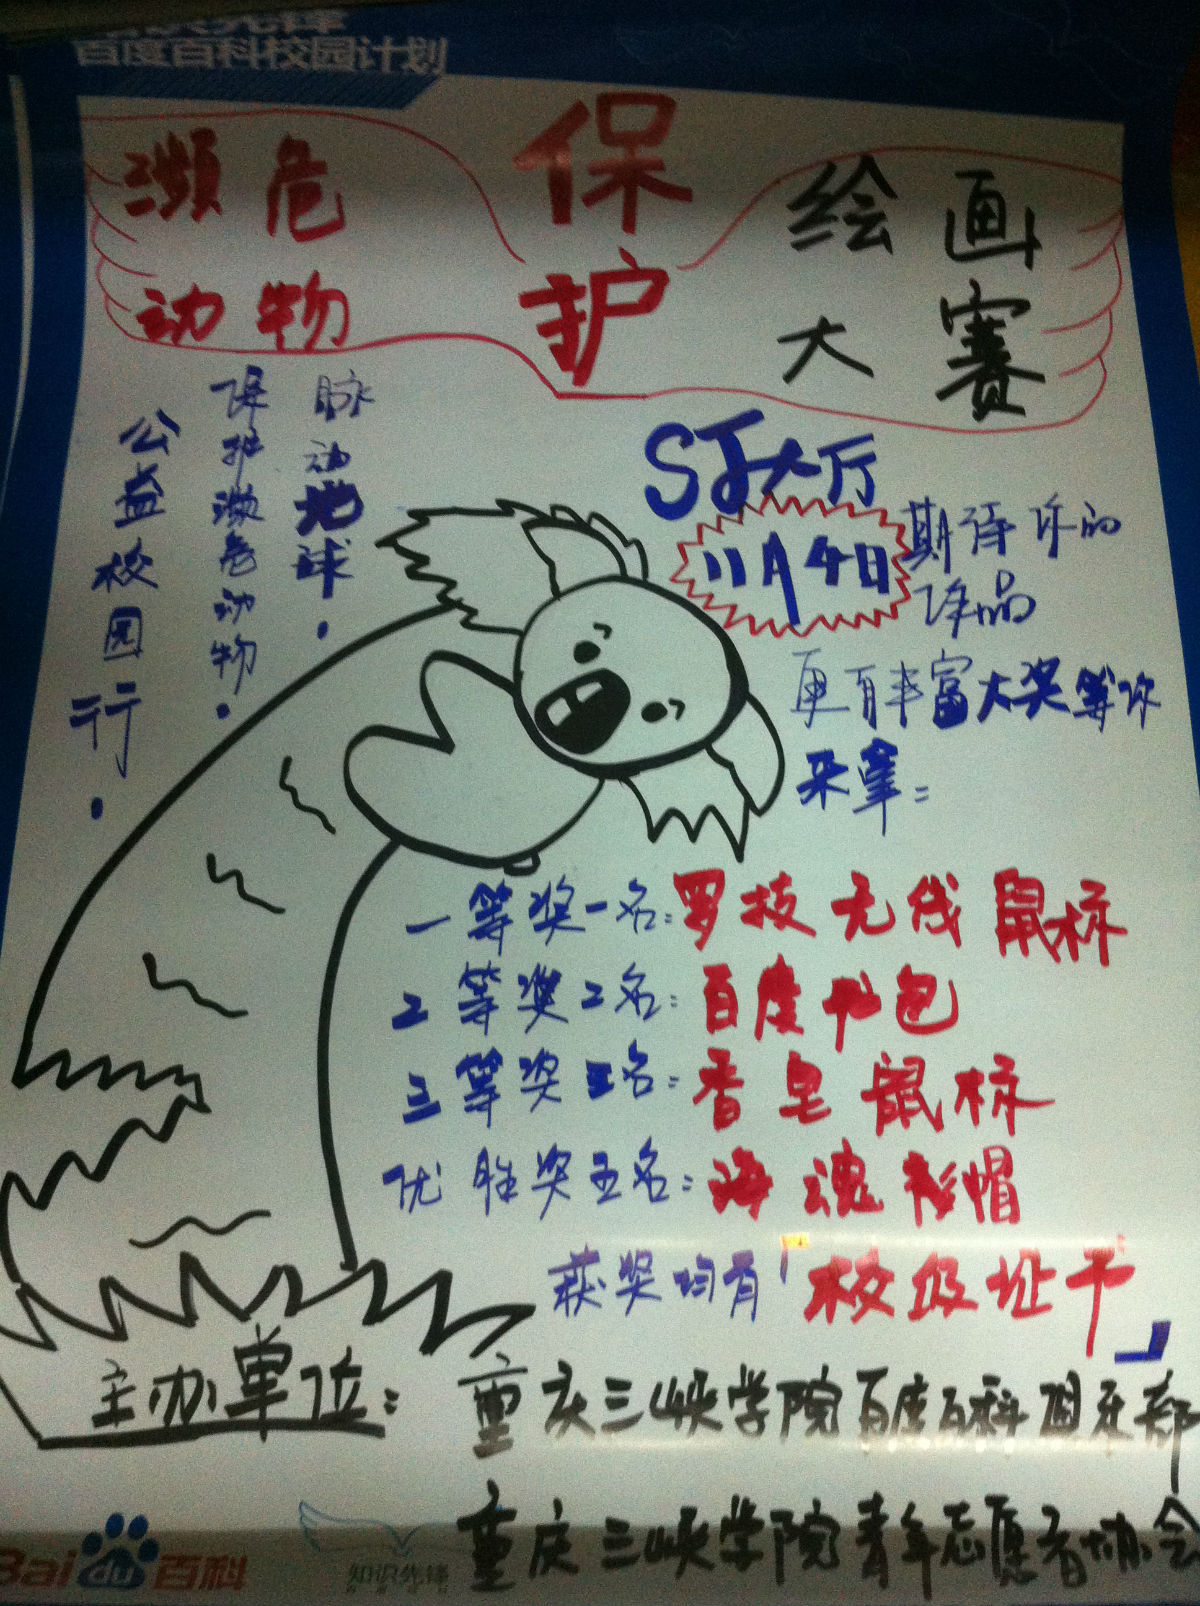 百度百科校园计划
保护
濒危
动物
绘画
大赛
脉动地球.
保护濒危动物.
公益校园行.
SJ大厅
11月4日
期待你的
作品
更有丰富大奖等你
来拿:
一等奖一名:罗技无线鼠标
2等奖2名:百度书包
三等奖三名:香皂鼠标
优胜奖五名:
获奖均有「校级证书」
主办单位:重庆三峡学院百度百科俱乐部
重庆三峡学院青年志愿者协会
Bai du 百科
知识先锋